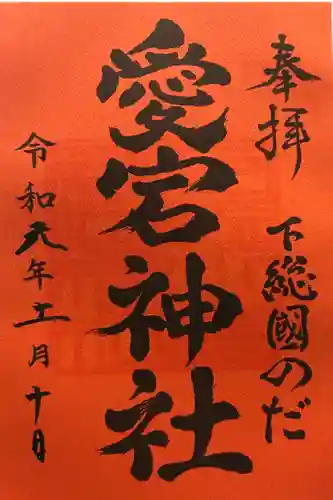 奉拝
下総國のだ
愛宕神社
令和元年十一月十日